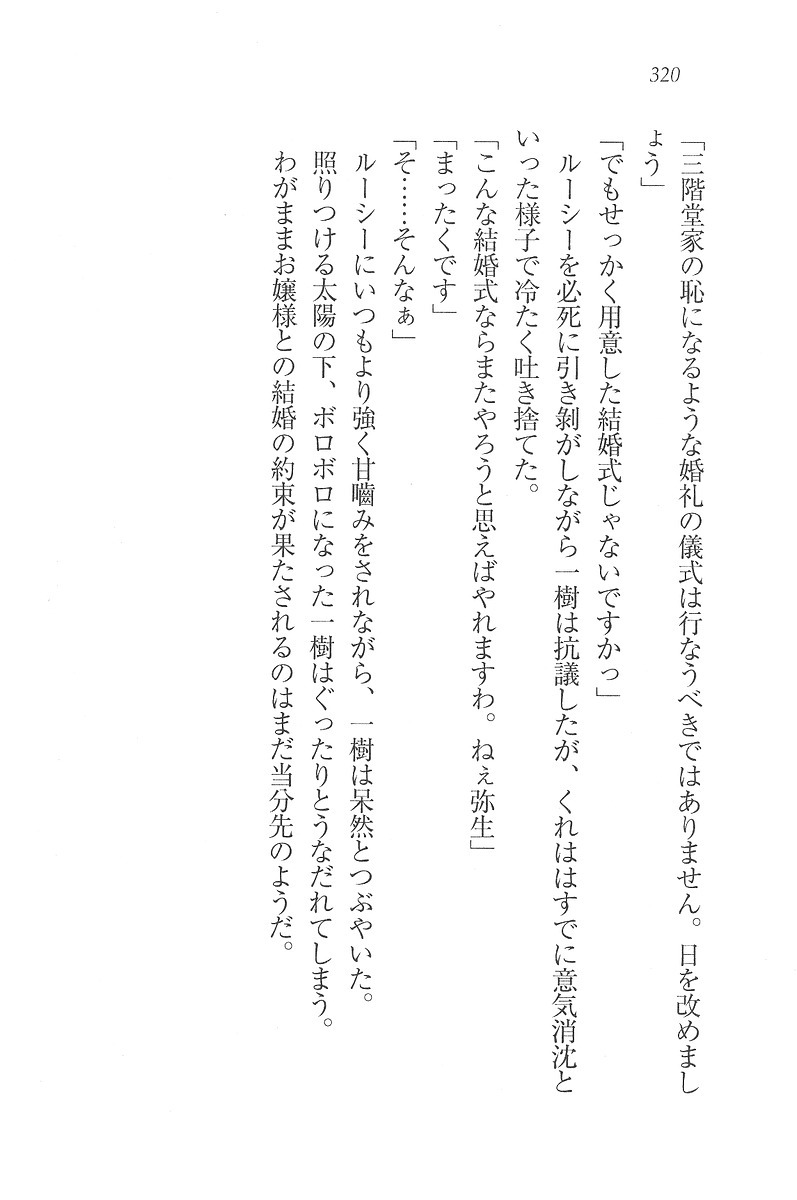 320
「三階堂家の恥になるような婚礼の儀式は行なうべきではありません。日を改めまし
ょう」
「でもせっかく用意した結婚式じゃないですかっ」
ルーシーを必死に引き剝がしながら一樹は抗議したが、くれははすでに意気消沈と
いった様子で冷たく吐き捨てた。
「こんな結婚式ならまたやろうと思えばやれますわ。ねぇ弥生」
「まったくです」
「そ……そんなぁ」
ルーシーにいつもより強く甘嚙みをされながら、一樹は呆然とつぶやいた。
照りつける太陽の下、ボロボロになった一樹はぐったりとうなだれてしまう。
わがままお嬢様との結婚の約束が果たされるのはまだ当分先のようだ。